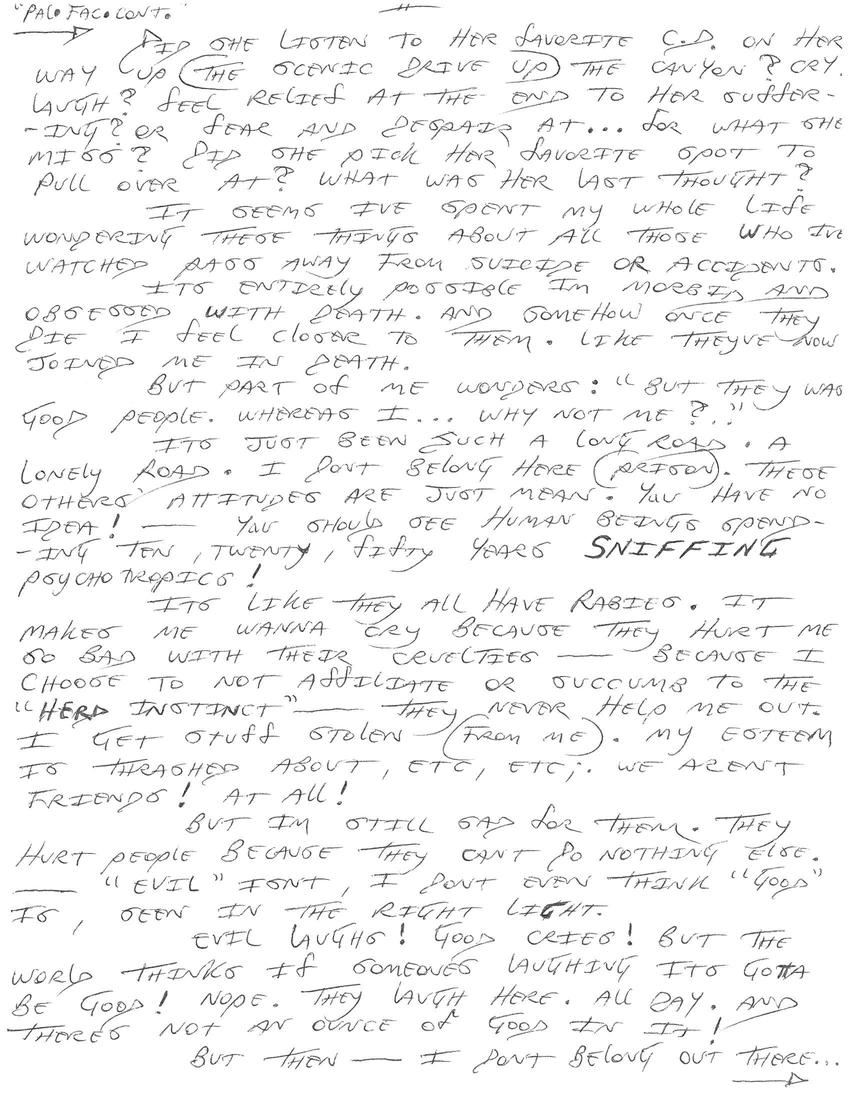 "PALO FAC. CONT.
DID SHE LISTEN TO HER FAVORITE C.D. ON HER
WAY UP (THE SCENIC DRIVE UP) THE CANYON? CRY.
LAUGH? FEEL RELIEF AT THE END TO HER SUFFER-
-ING? OR FEAR AND DESPAIR AT... FOR WHAT SHE
MISS? DID SHE PICK HER FAVORITE SPOT TO
PULL OVER AT? WHAT WAS HER LAST THOUGHT?
IT SEEMS IVE SPENT MY WHOLE LIFE
WONDERING THESE THINGS ABOUT ALL THOSE WHO IVE
WATCHED PASS AWAY FROM SUICIDE OR ACCIDENTS.
ITS ENTIRELY POSSIBLE IM MORBID AND
OBSESSED WITH DEATH. AND SOMEHOW ONCE THEY
DIE I FEEL CLOSER TO THEM. LIKE THEYVE NOW
JOINED ME IN DEATH.
BUT PART OF ME WONDERS: "BUT THEY WAS
GOOD PEOPLE. WHEREAS I... WHY NOT ME?.."
ITS JUST BEEN SUCH A LONG ROAD. A
LONELY ROAD. I DONT BELONG HERE (PRISON). THESE
OTHERS' ATTITUDES ARE JUST MEAN. YOU HAVE NO
IDEA! — YOU SHOULD SEE HUMAN BEINGS SPEND-
-ING TEN, TWENTY, FIFTY YEARS SNIFFING
PSYCHOTROPICS!
ITS LIKE THEY ALL HAVE RABIES. IT
MAKES ME WANNA CRY BECAUSE THEY HURT ME
SO BAD WITH THEIR CRUELTIES — BECAUSE I
CHOOSE TO NOT AFFILIATE OR SUCCUMB TO THE
"HERD INSTINCT" — THEY NEVER HELP ME OUT.
I GET STUFF STOLEN (FROM ME). MY ESTEEM
IS THRASHED ABOUT, ETC, ETC;. WE ARENT
FRIENDS! AT ALL!
BUT IM STILL SAD FOR THEM. THEY
HURT PEOPLE BECAUSE THEY CANT DO NOTHING ELSE.
— "EVIL" ISNT, I DONT EVEN THINK "GOOD"
IS, SEEN IN THE RIGHT LIGHT.
EVIL LAUGHS! GOOD CRIES! BUT THE
WORLD THINKS IF SOMEONES LAUGHING ITS GOTTA
BE GOOD! NOPE. THEY LAUGH HERE. ALL DAY. AND
THERES NOT AN OUNCE OF GOOD IN IT!
BUT THEN — I DONT BELONG OUT THERE...